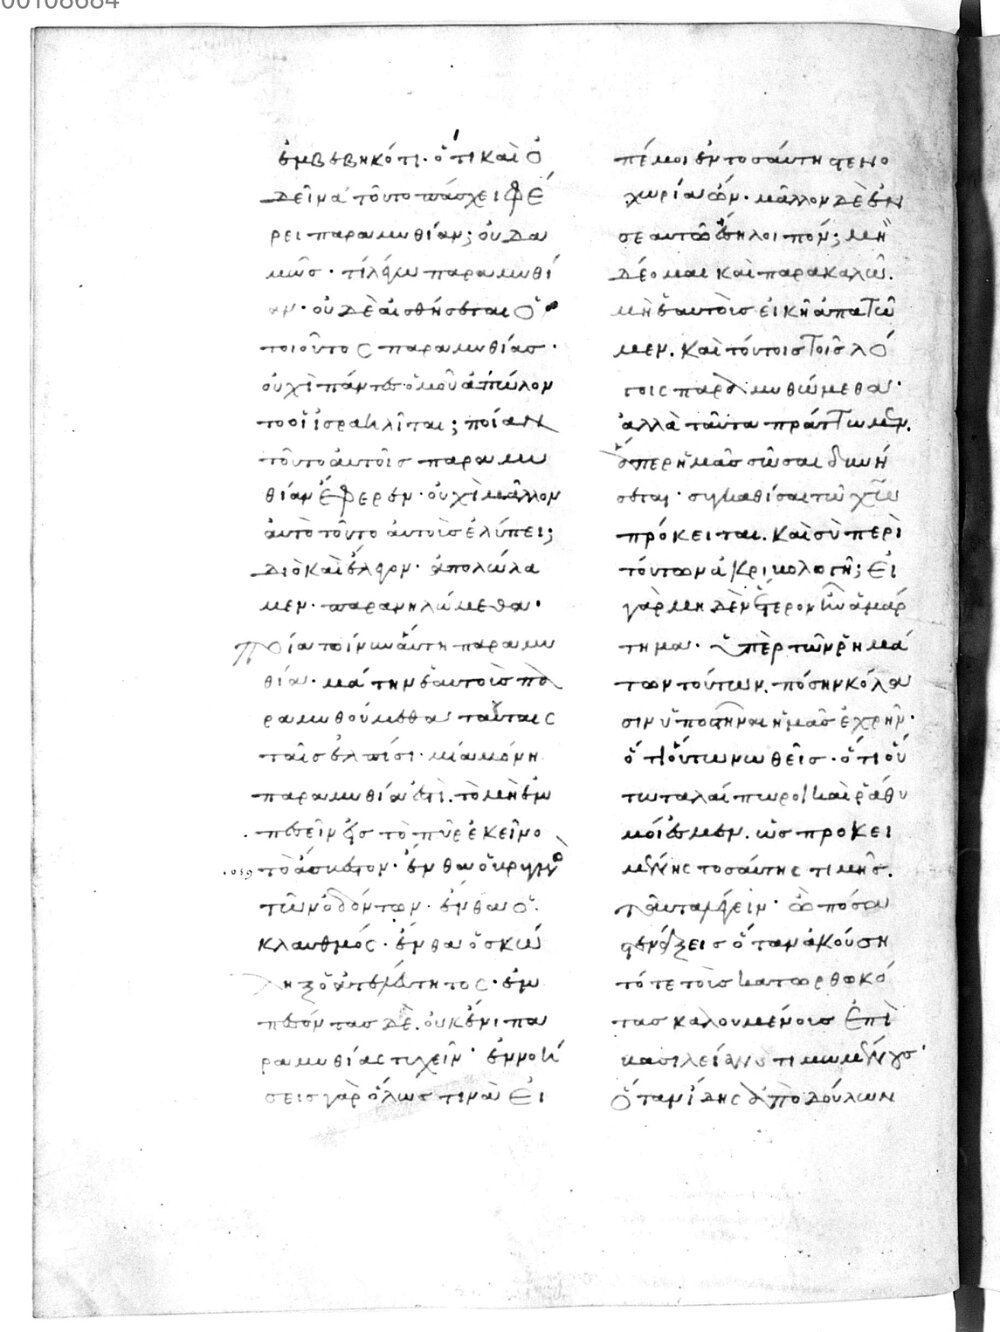 00108684
ἐμβεβηκότι· ὅτι καὶ ὁ
δεῖνα τοῦτο πάσχει φέ
ρει παραμυθίαν; οὐδα
μῶς· τί λέγω παραμυθί
αν· οὐδὲ αἰσθήσεται ὁ
τοιοῦτος παραμυθίας·
οὐχὶ πάντες ὁμοῦ ἀπώλον
το οἱ ἰσραηλῖται; ποίαν
τοῦτο αὐτοῖς παραμυ
θίαν ἔφερεν· οὐχὶ μᾶλλον
αὐτὸ τοῦτο αὐτοὺς ἐλύπει;
διὸ καὶ ἔλεγον· ἀπολώλα
μεν· παρανηλώμεθα·
ποία τοίνυν αὕτη παραμυ
θία· μάτην ἑαυτοὺς πα
ραμυθούμεθα ταύταις
ταῖς ἐλπίσι· μία μόνη
παραμυθία ἐστὶ· τὸ μὴ ἐμ
πεσεῖν εἰς τὸ πῦρ ἐκεῖνο
τὸ ἄσβεστον· ἔνθα ὁ βρυγμὸ
τῶν ὀδόντων· ἔνθα ὁ
κλαυθμός· ἔνθα ὁ σκώ
ληξ ὁ ἀτελεύτητος· ἐμ
πεσόντας δὲ· οὐκ ἔνι πα
ραμυθίας τυχεῖν· ἐννοή
σεις γὰρ ὅλως τινὰ εἰ
πέ μοι ἐν τοσαύτη στενο
χωρία ὤν· μᾶλλον δὲ ἐν
σεαυτῶ ἔση λοιπόν; μὴ
δέομαι καὶ παρακαλῶ·
μὴ ἑαυτοὺς εἰκῆ ἀπατῶ
μεν· καὶ τούτοις τοῖς λό
γοις παραμυθώμεθα·
ἀλλὰ ταῦτα πράττωμεν·
ἅπερ ἡμᾶς σῶσαι δυνή
σεται· συγκαθίσαι τῶ χῶ
πρόκειται· καὶ σὺ περὶ
τούτων ἀκριβολογῆ; εἰ
γὰρ μηδὲν ἕτερον ἦν ἁμάρ
τημα· ὑπὲρ τῶν ῥημά
των τούτων· πόσην κόλα
σιν ὑποστῆναι ἡμᾶς ἐχρῆν·
ὅτι οὕτω νωθεῖς· ὅτι οὕ
τω ταλαίπωροι καὶ ῥάθυ
μοί ἐσμεν· ὡς προκει
μένης τοσαύτης τιμῆς·
ταῦτα λέγειν· ὢ πόσα
στενάξεις ὅταν ἀκούση
τότε τοὺς κατωρθωκό
τας καλουμένους ἐπὶ
βασιλείαν τιμωμένους·
ὅταν ἴδης ἀπὸ δούλων